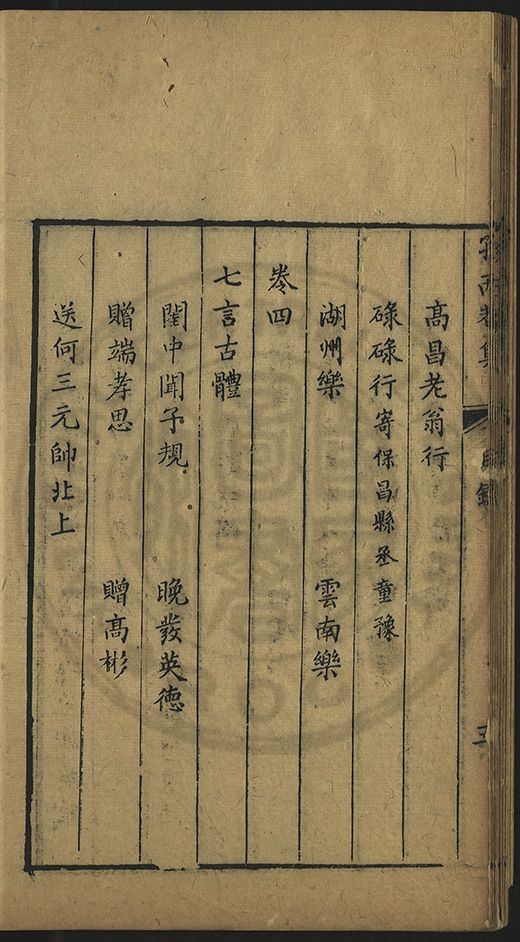 高昌老翁行
碌碌行寄保昌縣丞童豫
湖州樂 雲南樂
卷四
七言古體
閨中聞子規 晚發英德
贈端孝思 贈高彬
送何三元帥北上